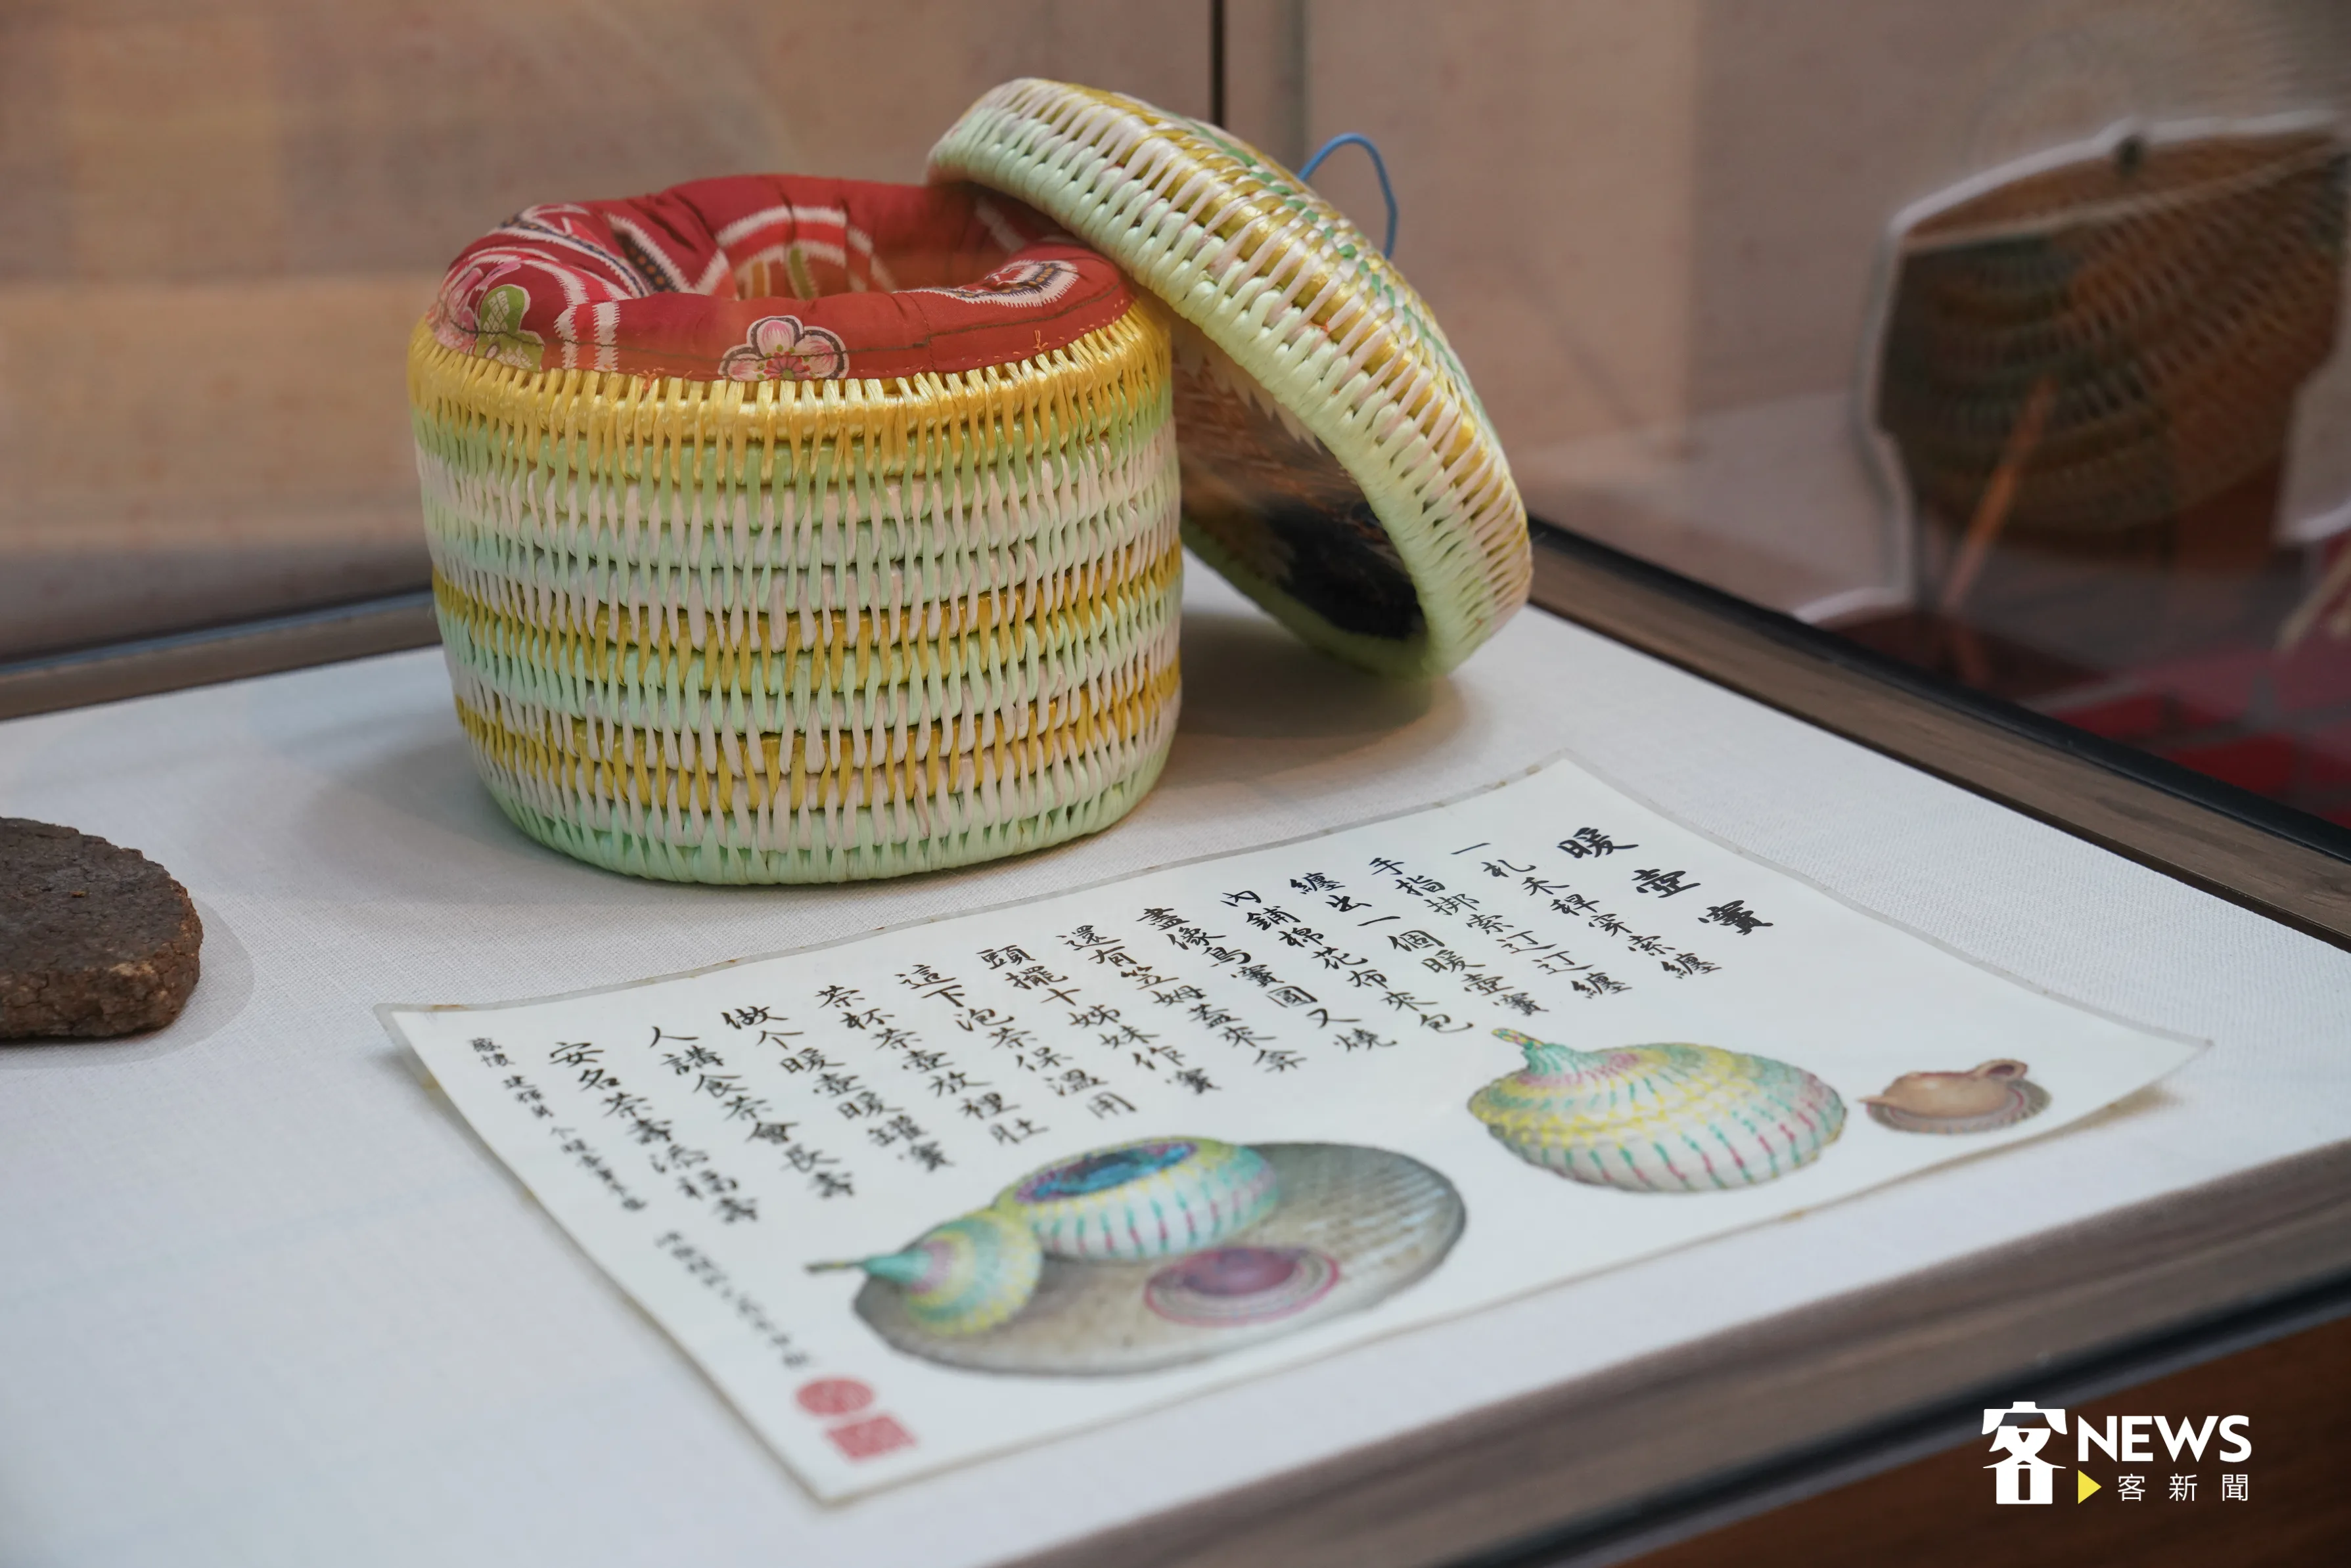 暖壺竇
一札禾稈穿索纏
手指挷索纏
纏出一個暖壺竇
內鋪棉花布來包
盡像鳥竇圓又燒
還有笠姆蓋來弇
頭擺十姊妹作竇
這下泡茶保溫用
茶杯茶壺放裡肚
做个暖壺暖罐竇
人講食茶會長壽
安名茶壽添福壽
客NEWS
客新聞